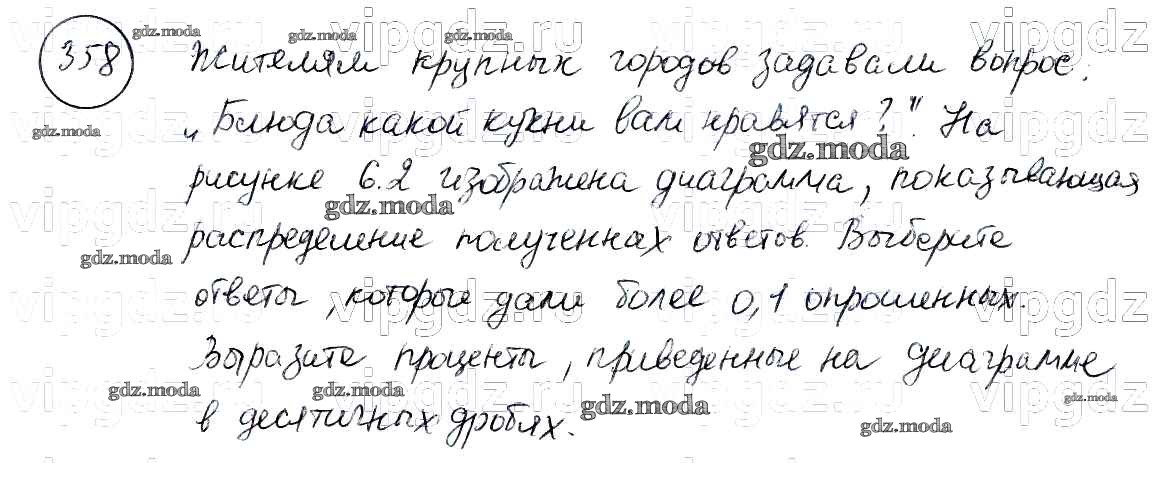 358 Жителям крупных городов задавали вопрос:
„Блюда какой кухни вам нравятся?". На
рисунке 6.2 изображена диаграмма, показывающая
распределение полученных ответов. Выберите
ответы, которые дали более 0,1 опрошенных.
Выразите проценты, приведенные на диаграмме
в десятичных дробях.
gdz.moda
vipgdz.ru